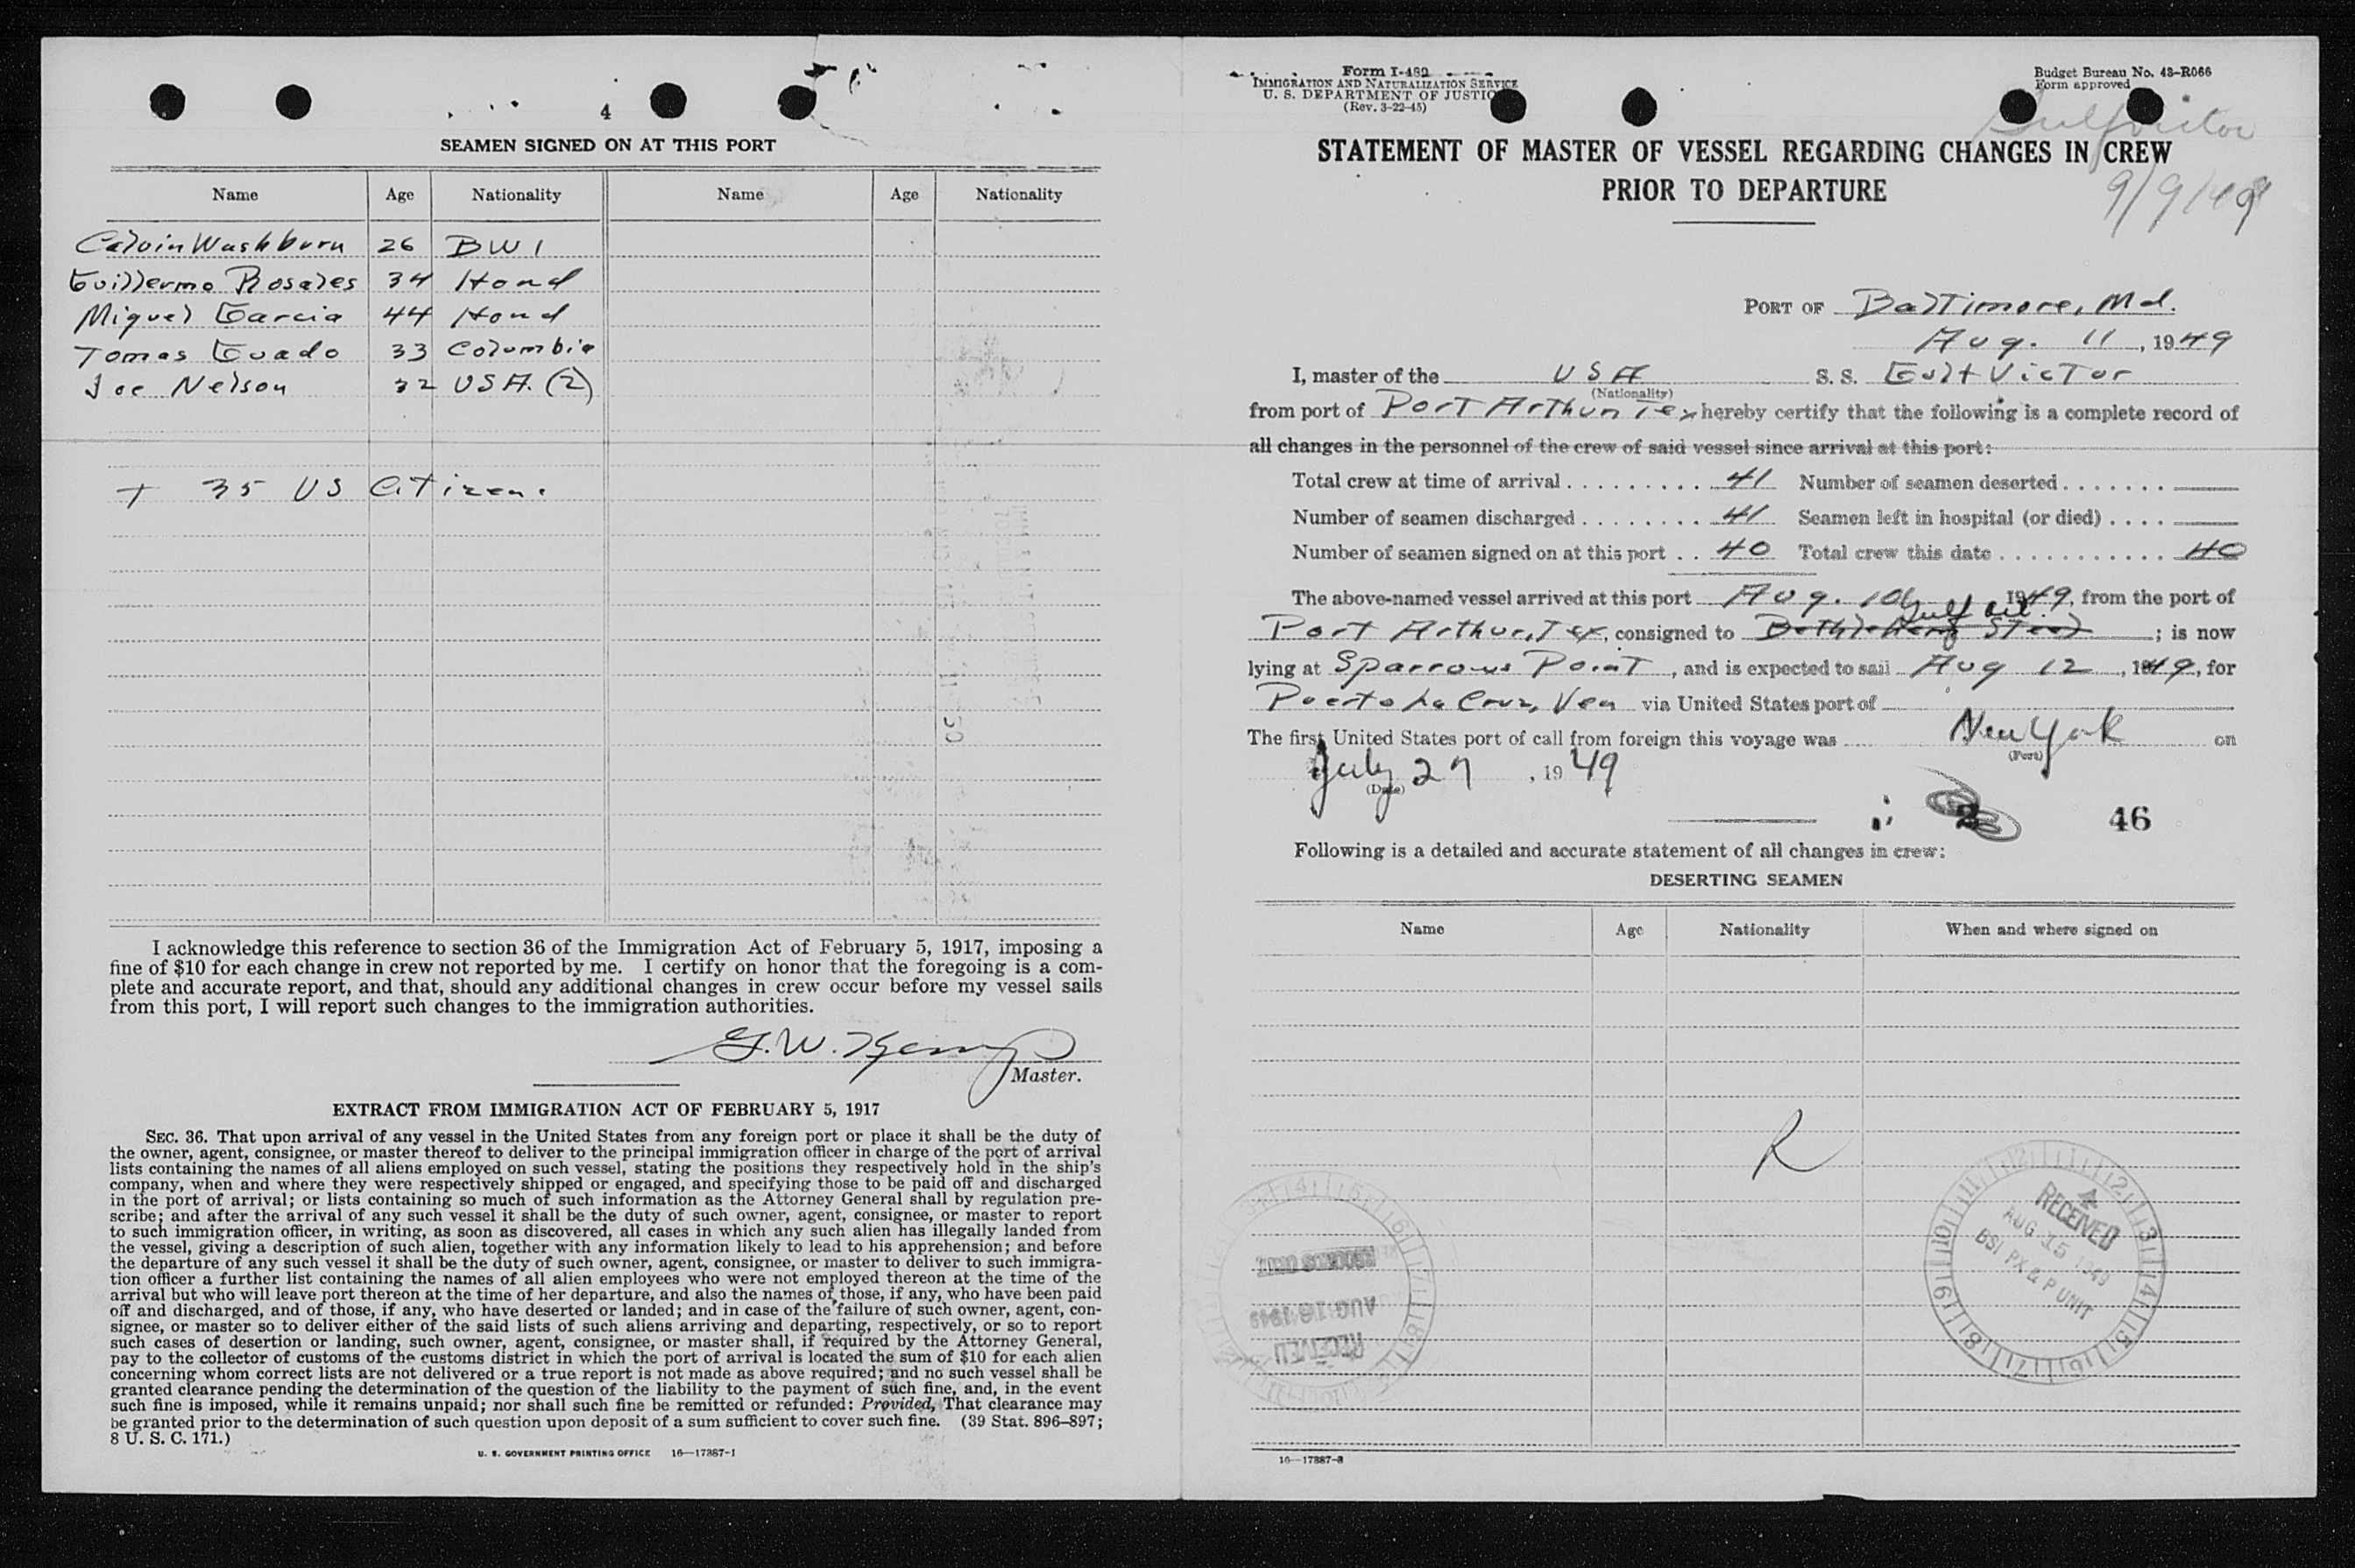 4
SEAMEN SIGNED ON AT THIS PORT
Name Age Nationality Name Age Nationality
Calvin Washburn 26 BWI
Guillermo Rosales 34 Hond
Miguel Garcia 44 Hond
Tomas Guado 33 Columbia
Joe Nelson 32 USA. (2)
+ 35 US Citizen.
I acknowledge this reference to section 36 of the Immigration Act of February 5, 1917, imposing a
fine of $10 for each change in crew not reported by me. I certify on honor that the foregoing is a com-
plete and accurate report, and that, should any additional changes in crew occur before my vessel sails
from this port, I will report such changes to the immigration authorities.
G. W.
Master.
EXTRACT FROM IMMIGRATION ACT OF FEBRUARY 5, 1917
SEC. 36. That upon arrival of any vessel in the United States from any foreign port or place it shall be the duty of
the owner, agent, consignee, or master thereof to deliver to the principal immigration officer in charge of the port of arrival
lists containing the names of all aliens employed on such vessel, stating the positions they respectively hold in the ship's
company, when and where they were respectively shipped or engaged, and specifying those to be paid off and discharged
in the port of arrival; or lists containing so much of such information as the Attorney General shall by regulation pre-
scribe; and after the arrival of any such vessel it shall be the duty of such owner, agent, consignee, or master to report
to such immigration officer, in writing, as soon as discovered, all cases in which any such alien has illegally landed from
the vessel, giving a description of such alien, together with any information likely to lead to his apprehension; and before
the departure of any such vessel it shall be the duty of such owner, agent, consignee, or master to deliver to such immigra-
tion officer a further list containing the names of all alien employees who were not employed thereon at the time of the
arrival but who will leave port thereon at the time of her departure, and also the names of those, if any, who have been paid
off and discharged, and of those, if any, who have deserted or landed; and in case of the failure of such owner, agent, con-
signee, or master so to deliver either of the said lists of such aliens arriving and departing, respectively, or so to report
such cases of desertion or landing, such owner, agent, consignee, or master shall, if required by the Attorney General,
pay to the collector of customs of the customs district in which the port of arrival is located the sum of $10 for each alien
concerning whom correct lists are not delivered or a true report is not made as above required; and no such vessel shall be
granted clearance pending the determination of the question of the liability to the payment of such fine, and, in the event
such fine is imposed, while it remains unpaid; nor shall such fine be remitted or refunded: Provided, That clearance may
be granted prior to the determination of such question upon deposit of a sum sufficient to cover such fine. (39 Stat. 896–897;
8 U. S. C. 171.)
U. S. GOVERNMENT PRINTING OFFICE 16—17387-1
Form I-489
IMMIGRATION AND NATURALIZATION SERVICE
U. S. DEPARTMENT OF JUSTICE
(Rev. 3-22-45)
Budget Bureau No. 43-R066
Form approved
Gulfvictor
9/9/49
STATEMENT OF MASTER OF VESSEL REGARDING CHANGES IN CREW
PRIOR TO DEPARTURE
PORT OF Baltimore, Md.
Aug. 11, 1949
I, master of the USA S. S. Gulf Victor
(Nationality)
from port of Port Arthur Tex hereby certify that the following is a complete record of
all changes in the personnel of the crew of said vessel since arrival at this port:
Total crew at time of arrival 41 Number of seamen deserted
Number of seamen discharged 41 Seamen left in hospital (or died)
Number of seamen signed on at this port 40 Total crew this date 40
The above-named vessel arrived at this port Aug. 10, 1949, from the port of
Gulf Oil
Port Arthur, Tex, consigned to Bethlehem Steel; is now
lying at Sparrows Point, and is expected to sail Aug 12, 1949, for
Puerto La Cruz, Ven via United States port of
The first United States port of call from foreign this voyage was New York on
(Port)
July 27, 1949
(Date)
46
Following is a detailed and accurate statement of all changes in crew:
DESERTING SEAMEN
Name Age Nationality When and where signed on
R
RECEIVED
AUG 15 1949
BSI PX & P UNIT
RECEIVED
AUG 16 1949
RECORDS UNIT
16—17387-3